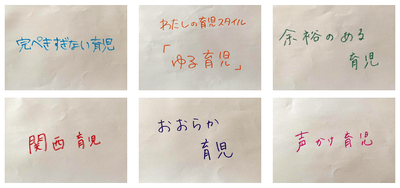 完ぺきすぎない育児
わたしの育児スタイル
「ゆる育児」
余裕のある
育児
関西 育児
おおらか
育児
声かけ育児